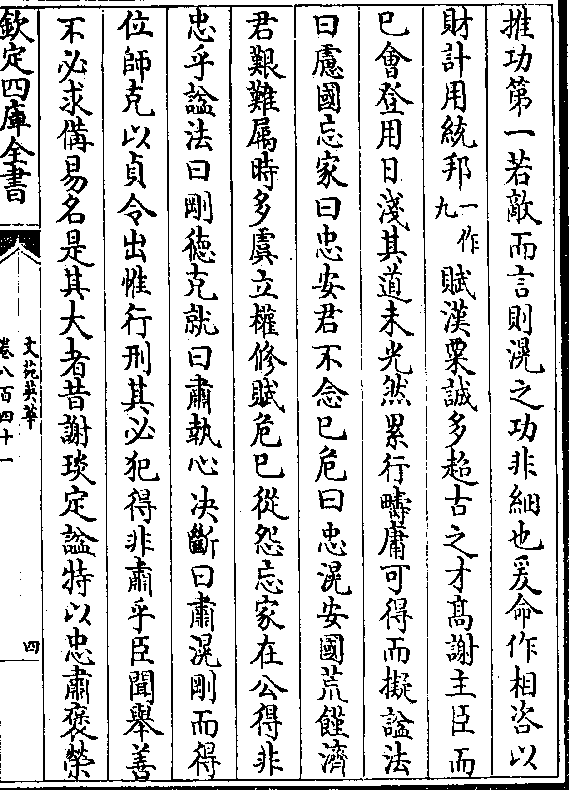 推功第一若敵而言則滉之功非細也爰命作相咨以
財計用統邦一作九賦漢粟誠多超古之才髙謝主臣而
已㑹登用日淺其道未光然累行疇庸可得而擬諡法
曰慮國忘家曰忠安君不念己危曰忠滉安國荒饉濟
君艱難属時多虞立權修賦危已從怨忘家在公得非
忠乎諡法曰剛徳克就曰肅執心决斷曰肅滉剛而得
位師克以貞令出惟行刑其必犯得非肅乎臣聞舉善
不必求備易名是其大者昔謝琰定諡特以忠肅褒榮
欽定四庫全書
文苑英華
卷八百四十一
四